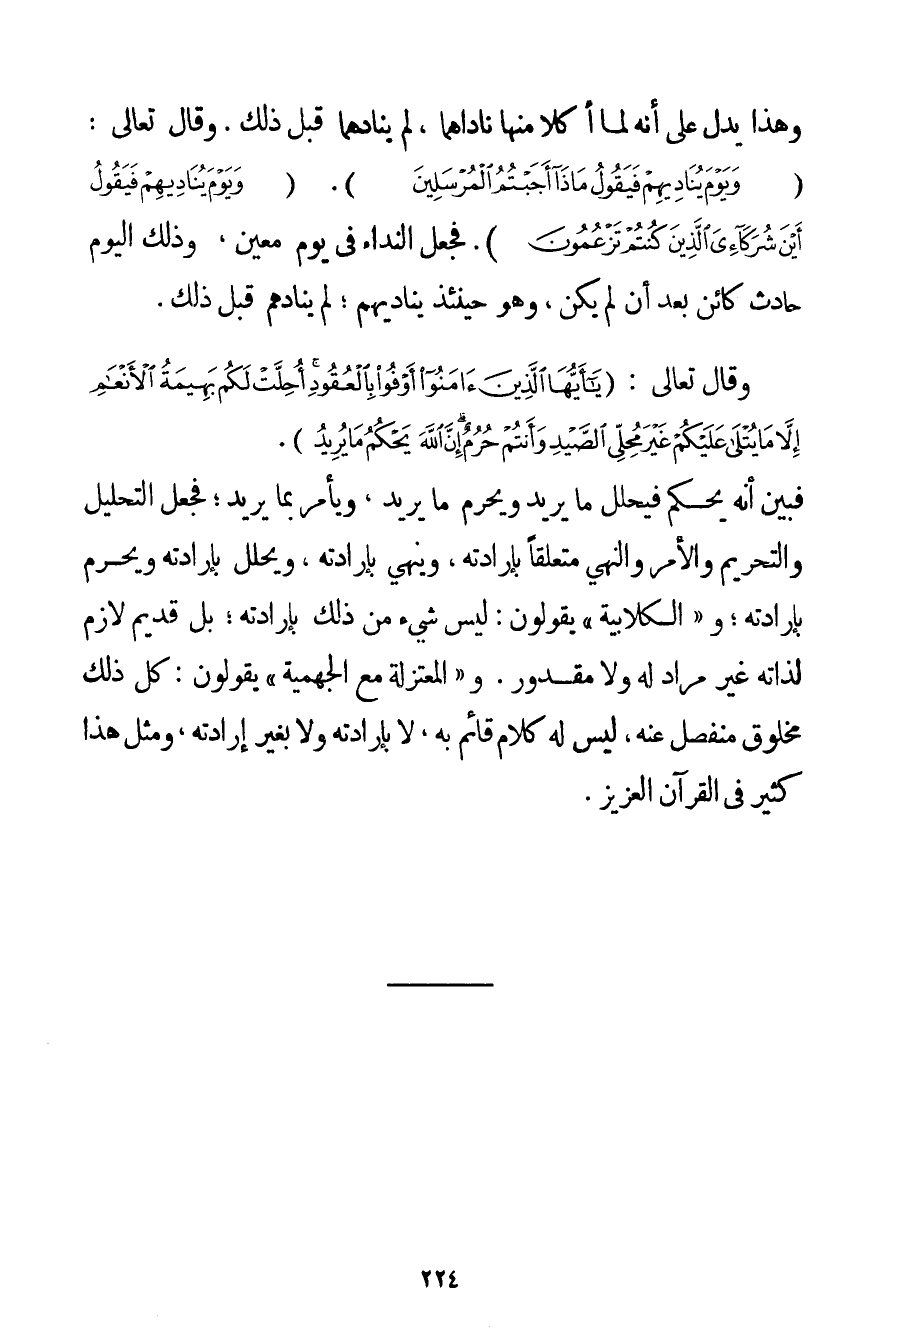 وهذا يدل على أنه لما أكلا منها ناداها ، لم ينادهما قبل ذلك . وقال تعالى :
( وَيَوْمَ يُنَادِيهِمْ فَيَقُولُ مَاذَآ أَجَبْتُمُ ٱلْمُرْسَلِينَ ) . ( وَيَوْمَ يُنَادِيهِمْ فَيَقُولُ
أَيْنَ شُرَكَآءِىَ ٱلَّذِينَ كُنتُمْ تَزْعُمُونَ ) . فجعل النداء فى يوم معين ، وذلك اليوم
حادث كائن بعد أن لم يكن ، وهو حينئذ يناديهم ؛ لم ينادهم قبل ذلك .
وقال تعالى : ( يَٰٓأَيُّهَا ٱلَّذِينَ ءَامَنُوٓا۟ أَوْفُوا۟ بِٱلْعُقُودِ ۚ أُحِلَّتْ لَكُم بَهِيمَةُ ٱلْأَنْعَٰمِ
إِلَّا مَا يُتْلَىٰ عَلَيْكُمْ غَيْرَ مُحِلِّى ٱلصَّيْدِ وَأَنتُمْ حُرُمٌ ۗ إِنَّ ٱللَّهَ يَحْكُمُ مَا يُرِيدُ ) .
فبين أنه يحكم فيحلل ما يريد ويحرم ما يريد ، ويأمر بما يريد ؛ فجعل التحليل
والتحريم والأمر والنهي متعلقاً بإرادته ، وينهي بإرادته ، ويحلل بإرادته ويحرم
بإرادته ؛ و « الكلابية » يقولون : ليس شيء من ذلك بإرادته ؛ بل قديم لازم
لذاته غير مراد له ولا مقدور . و « المعتزلة مع الجهمية » يقولون : كل ذلك
مخلوق منفصل عنه ، ليس له كلام قائم به ، لا بإرادته ولا بغير إرادته ، ومثل هذا
كثير فى القرآن العزيز .
٢٢٤